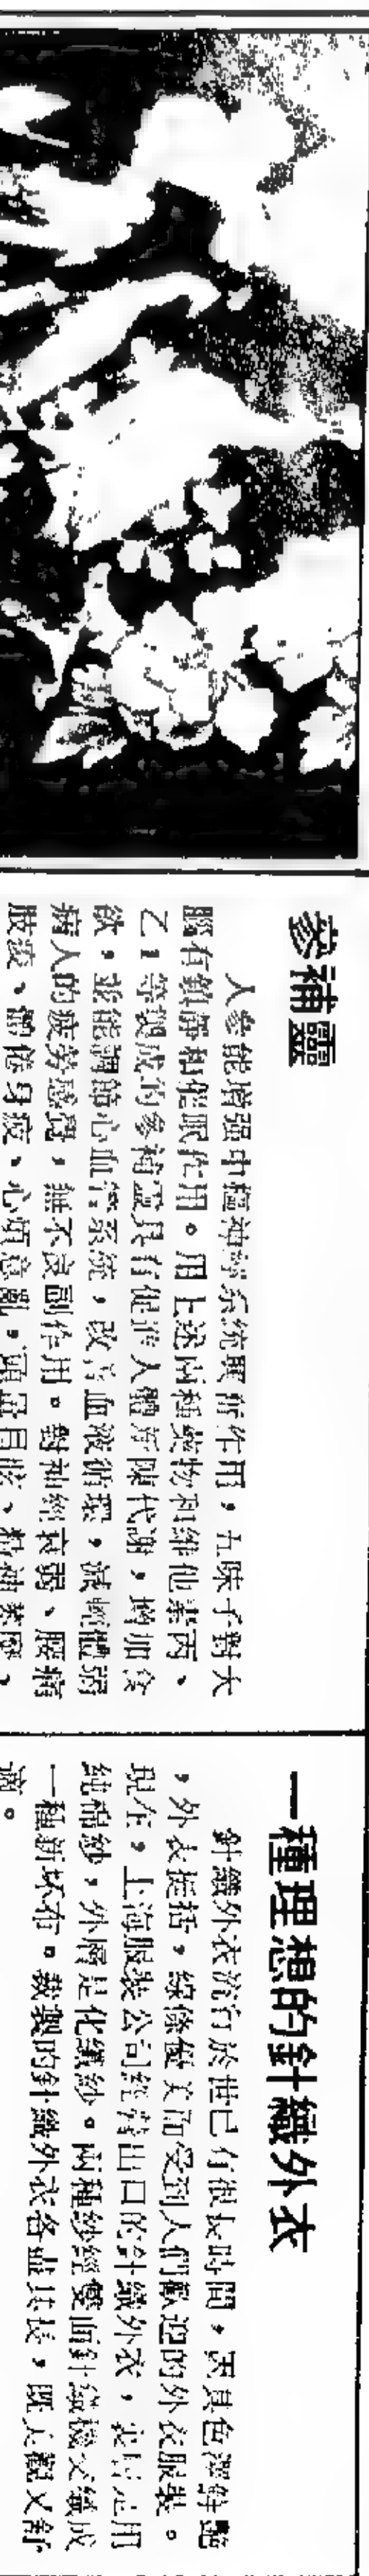 參補靈
人參能增强中樞神經系統興奮作用，五味子對大
腦有鎮靜和催眠作用。用上述兩種藥物和維他素丙、
乙1等製成的參補靈具有促進人體新陳代謝，增加食
欲，並能調節心血管系統，改善血液循環，減輕體弱
病人的疲勞感覺，無不良副作用。對神經衰弱、腰痛
肢痠、勞倦身疲、心煩意亂，頭昏目眩、精神萎靡、
一種理想的針織外衣
針織外衣流行於世已有很長時間，因具色澤鮮艷
，外衣挺括，線條優美而受到人們歡迎的外衣服裝。
現在，上海服裝公司經營出口的針織外衣，裏層是用
純棉紗，外層是化纖紗。兩種紗經雙面針織機交織成
一種新坯布。裁製的針織外衣各盡其長，既美觀又舒
適。